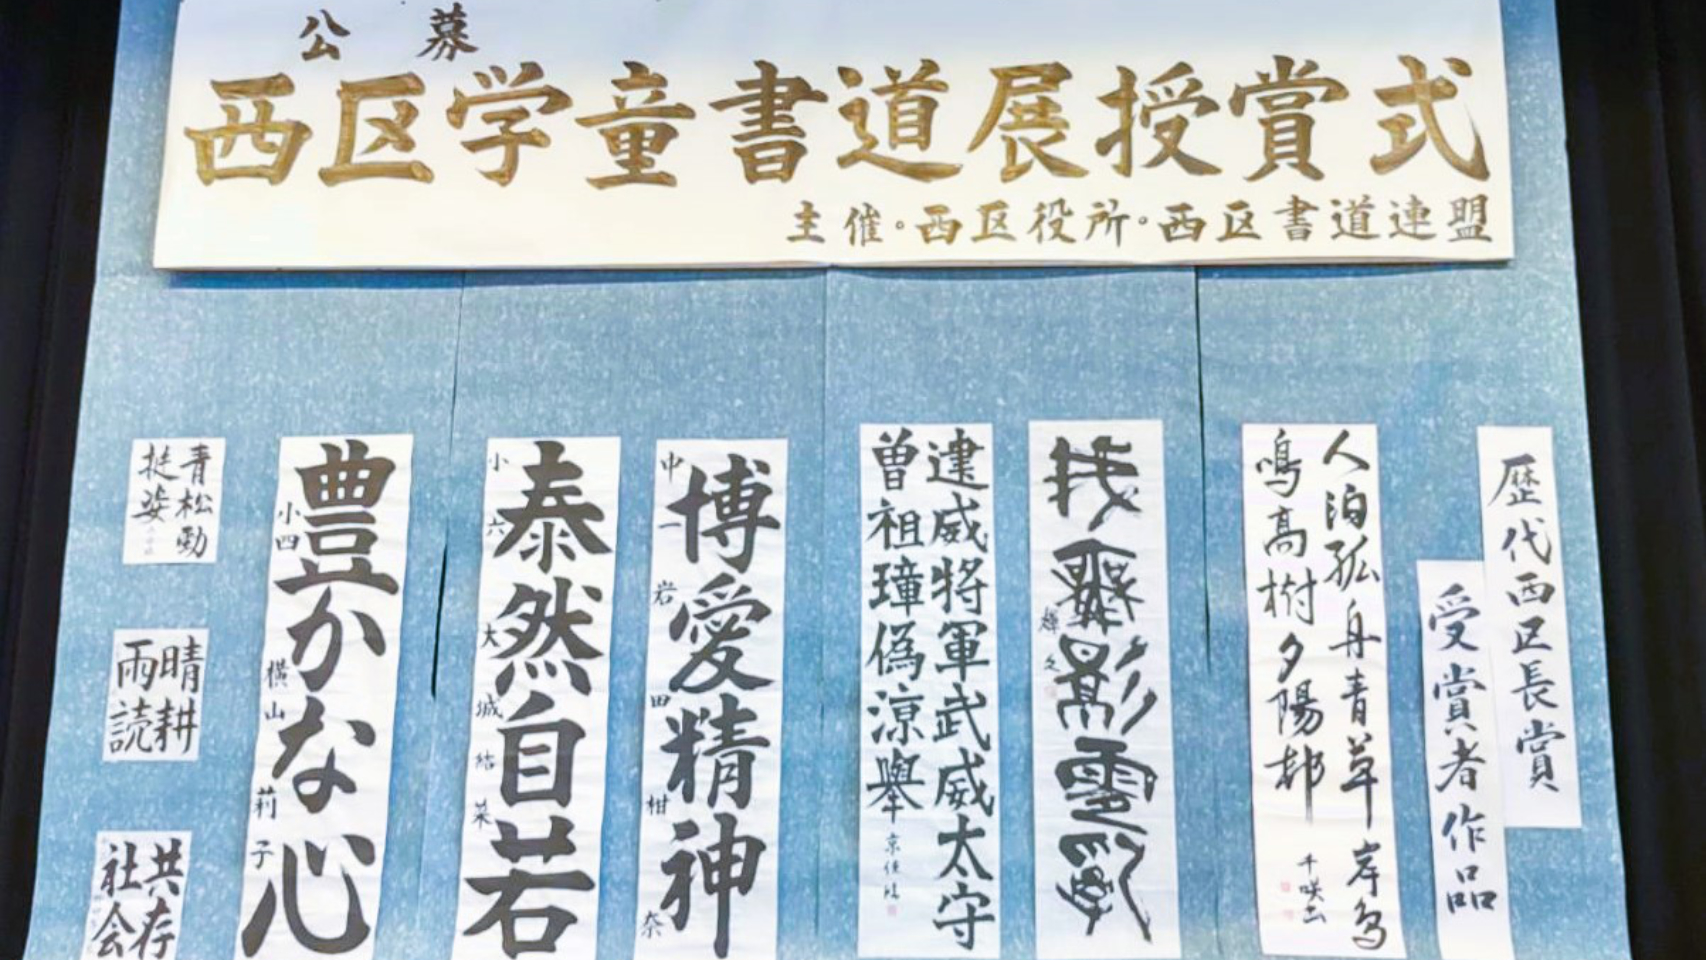 公募
西区学童書道展授賞式
主催。西区役所。西区書道連盟
歴代西区長賞
受賞者作品
人泊孤舟青草岸鳥
鳴高樹夕陽邨
逮威将軍武威太守
曽祖璋偽涼舉
博愛精神
中一 岩田柑奈
泰然自若
小六 大城結菜
豊かな心
小四 横山莉子
青松勁
挺姿
晴耕
雨読
共存
社会